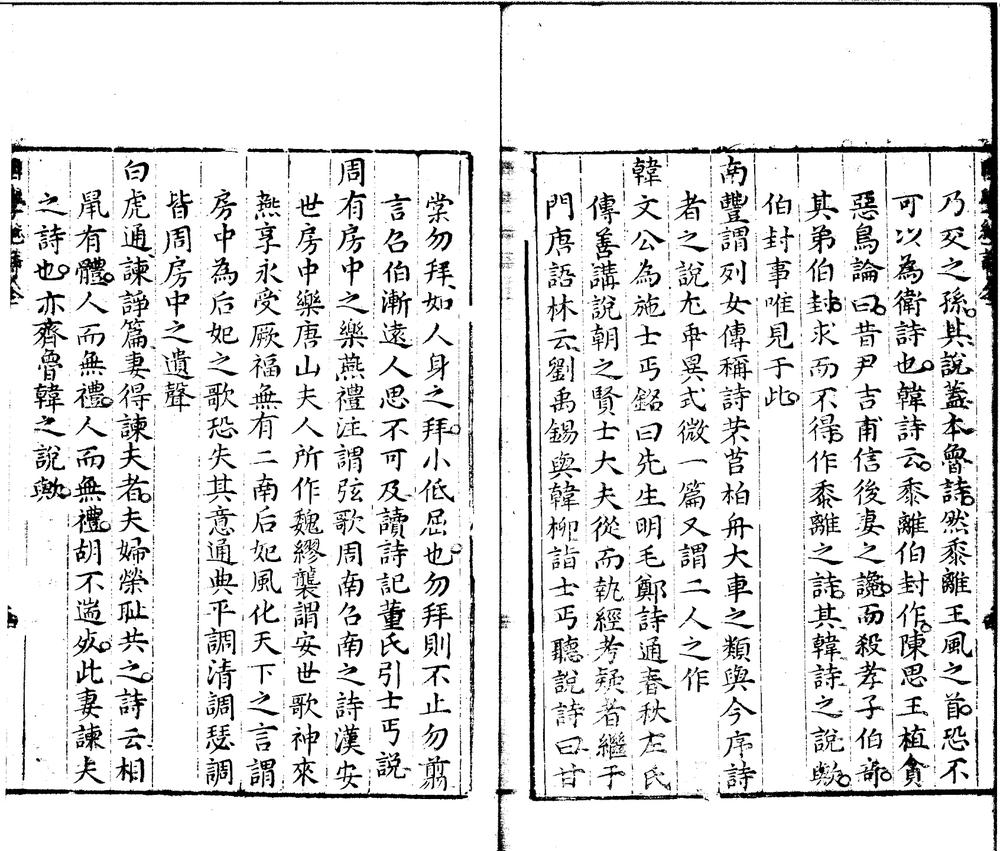 乃㕛之孫其說葢本魯詩然黍離王風之首恐不
可以為衛詩也韓詩云黍離伯封作陳思王植貪
惡鳥論曰昔尹吉甫信後妻之讒而殺孝子伯奇
其弟伯封求而不得作黍離之詩其韓詩之說歟
伯封事唯見于此
南豐謂列女傳稱詩芣苢柏舟大車之類與今序詩
者之說尢乖異式微一篇又謂二人之作
韓文公為施士丐銘曰先生明毛鄭詩通春秋左氏
傳善講說朝之賢士大夫從而執經考疑者繼于
門唐語林云劉禹錫與韓柳詣士丐聽說詩曰甘
棠勿拜如人身之拜小低屈也勿拜則不止勿翦
言召伯漸遠人思不可及讀詩記董氏引士丐說
周有房中之樂燕禮注謂弦歌周南召南之詩漢安
世房中樂唐山夫人所作魏繆襲謂安世歌神來
燕享永受厥福無有二南后妃風化天下之言謂
房中為后妃之歌恐失其意通典平調清調瑟調
皆周房中之遺聲
白虎通諫諍篇妻得諫夫者夫婦榮恥共之詩云相
鼠有體人而無禮人而無禮胡不遄死此妻諫夫
之詩也亦齊魯韓之說歟